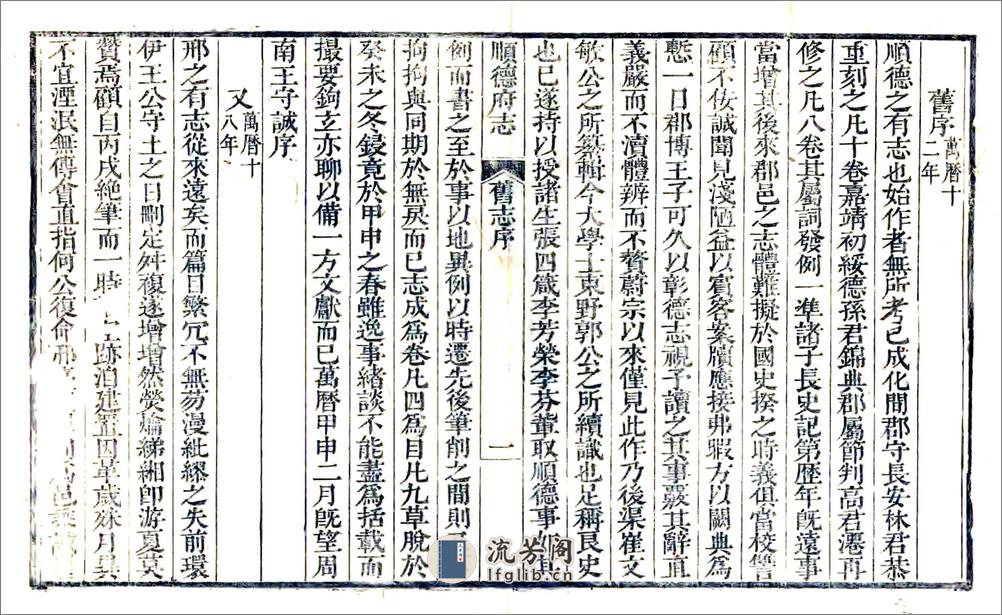 舊序萬曆十二年
順德之有志也始作者無所考已成化間郡守長安林君恭
重刻之凡十卷嘉靖初綏德孫君錦典郡屬節判高君遷再
修之凡八卷其屬詞發例一準諸子長史記第歷年旣遠事
當增其後來郡邑之志體難擬於國史揆之時義俱當校讐
顧不佞誠聞見淺陋益以賓客案牘應接弗暇方以闕典爲
慙一日郡博王子可久以彰德志視予讀之其事覈其辭直
義嚴而不瀆體辨而不贅蔚宗以來僅見此作乃後渠崔文
敏公之所纂輯今大學士東野郭公之所續識也足稱良史
也已遂持以授諸生張四箴李芳榮李芬輩取順德事如其
順德府志
舊志序
一
例而書之至於事以地異例以時遷先後筆削之間則
拘拘與同期於無戾而已志成爲卷凡四爲目凡九草脫於
癸未之冬鋟竟於甲申之春雖逸事緒談不能盡爲括載而
撮要鉤玄亦聊以備一方文獻而已萬曆甲申二月旣望周
南王守誠序
又萬曆十八年
邢之有志從來遠矣而篇目繁冗不無勿漫紕繆之失前環
伊王公守土之日刪定舛複遂增增然熒爚綈緗卽游夏莫
贊焉顧自丙戌絶筆而一時
跡洎建置因革歲殊月異
不宜湮泯無傳會直指何公復命邢
邑乘
流芳阁
lfglib.cn